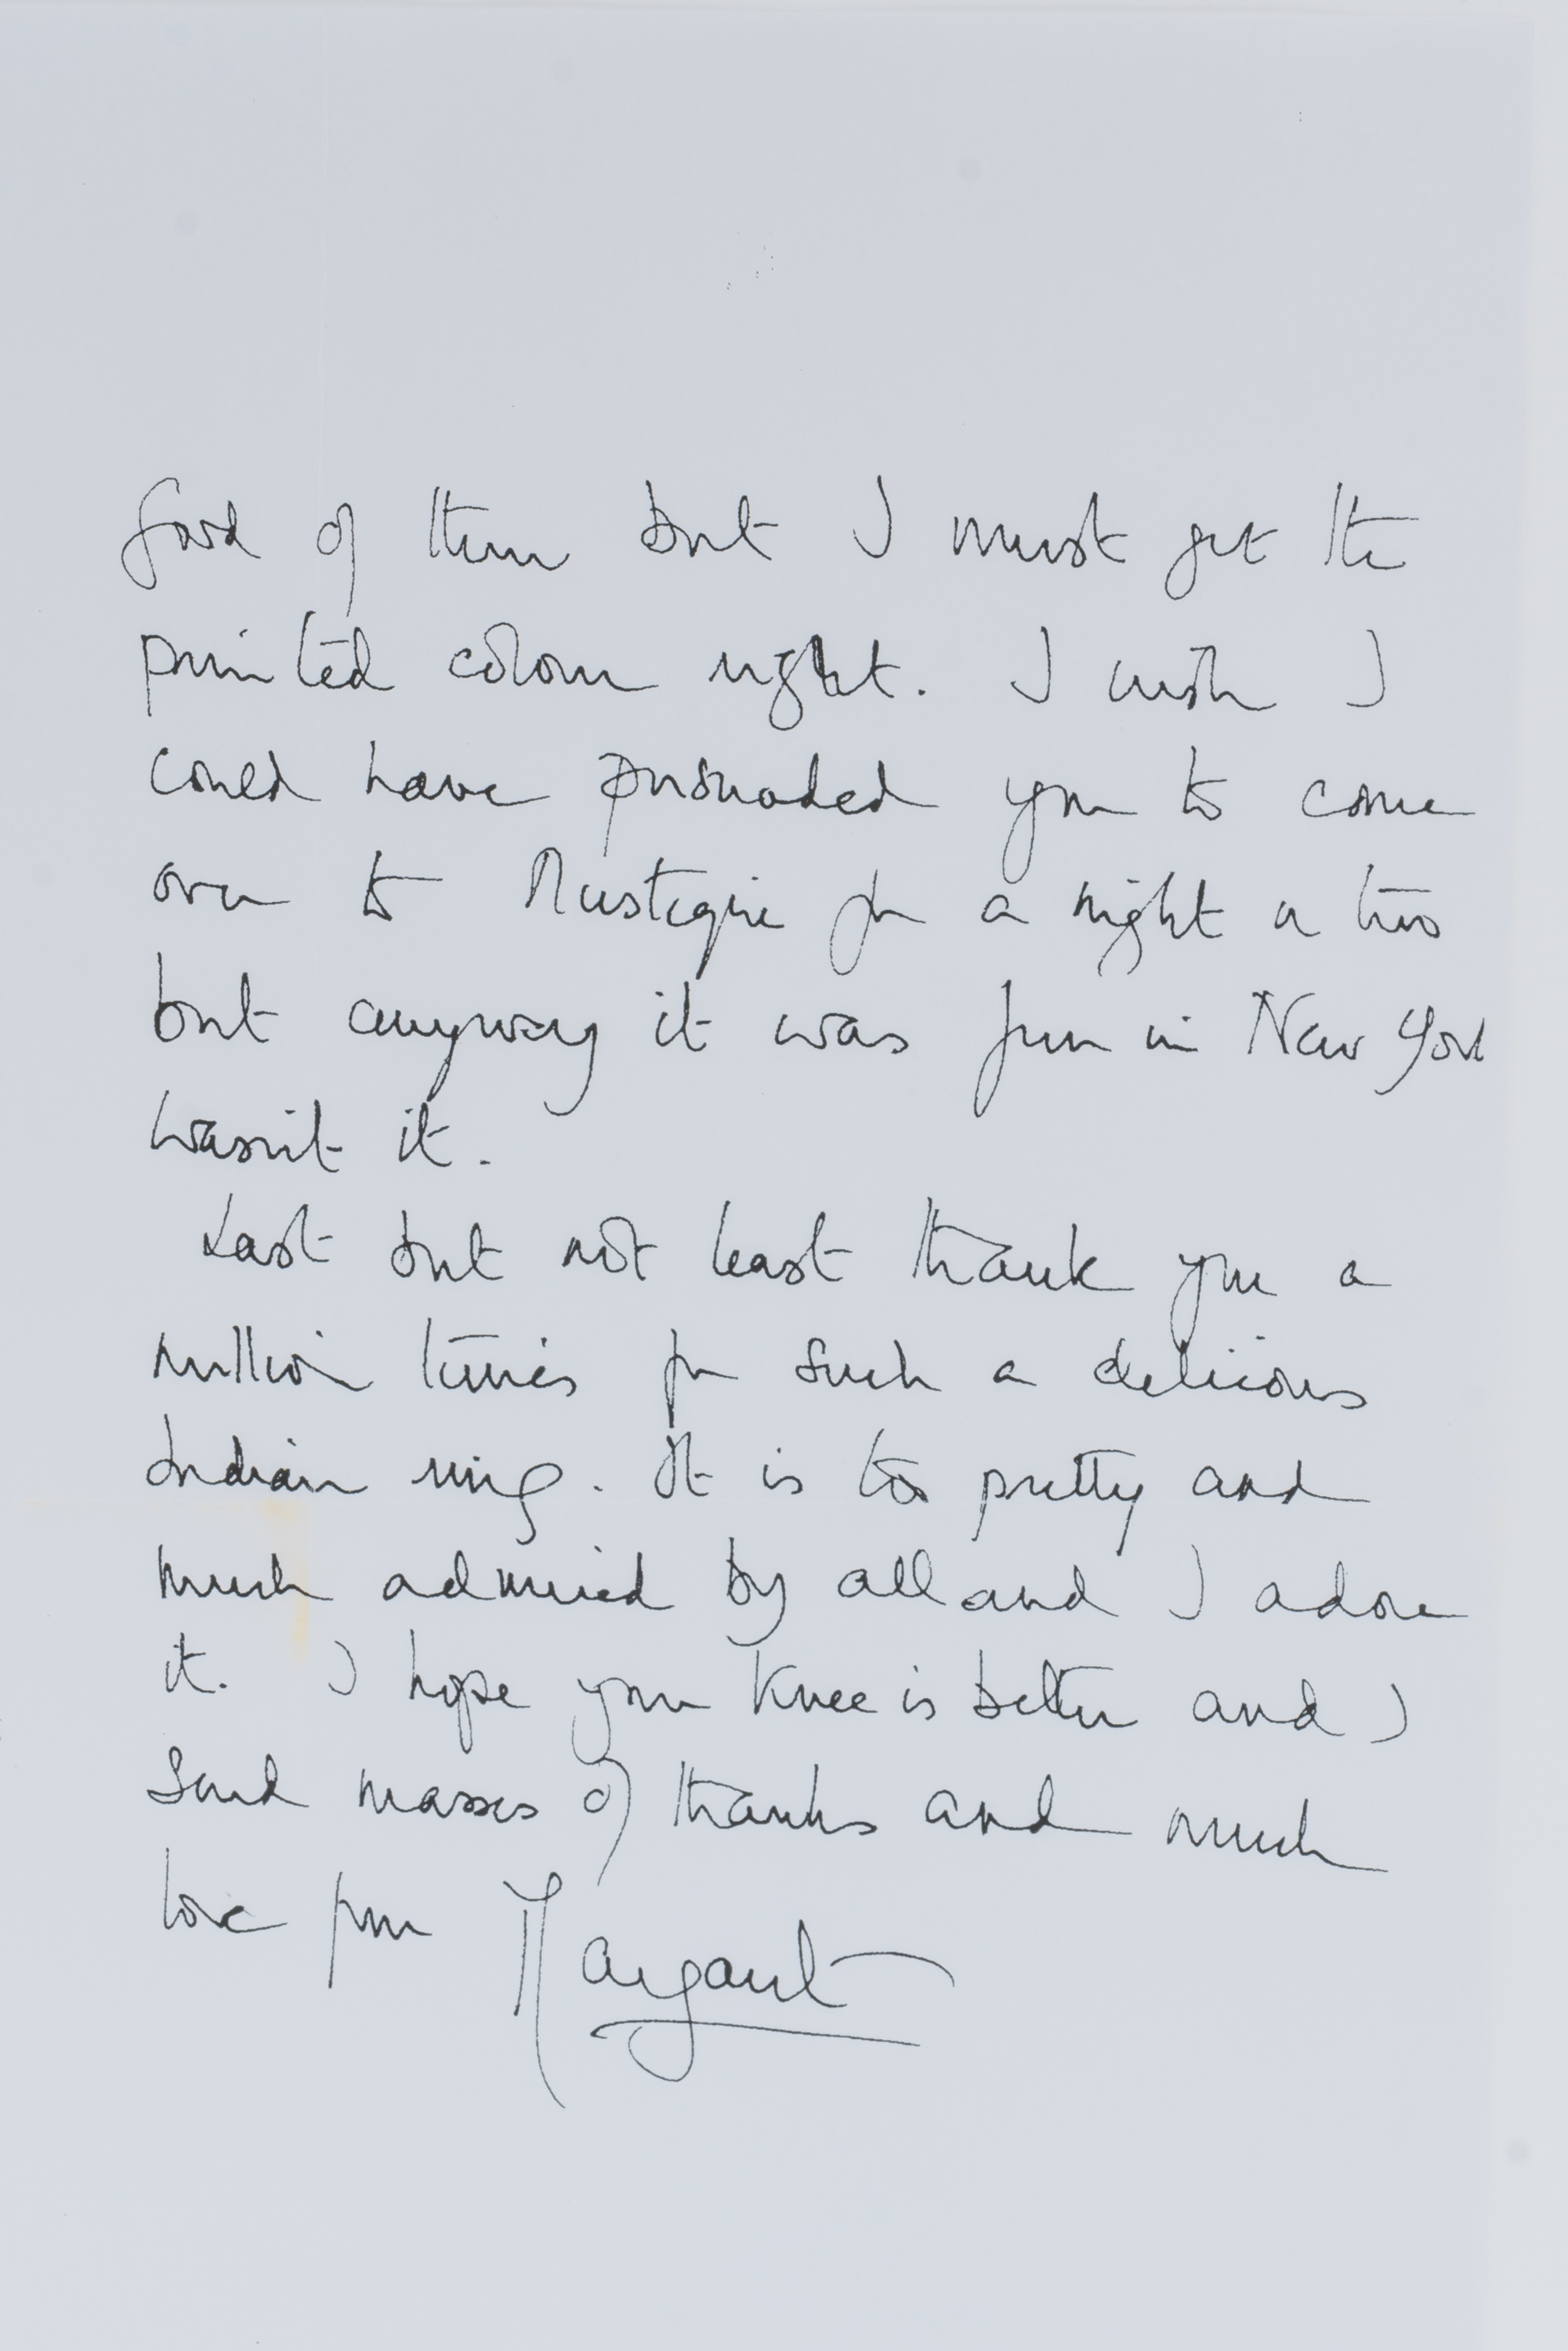 fond of them but I must get the
printed colour right. I wish I
could have pursuaded you to come
over to Mustique for a night or two
but anyway it was fun in New York
wasn't it.
Last but not least thank you a
million times for such a delicious
Indian ring. It is too pretty and
much admired by all and I adore
it. I hope your knee is better and I
send masses of thanks and much
love from Margaret